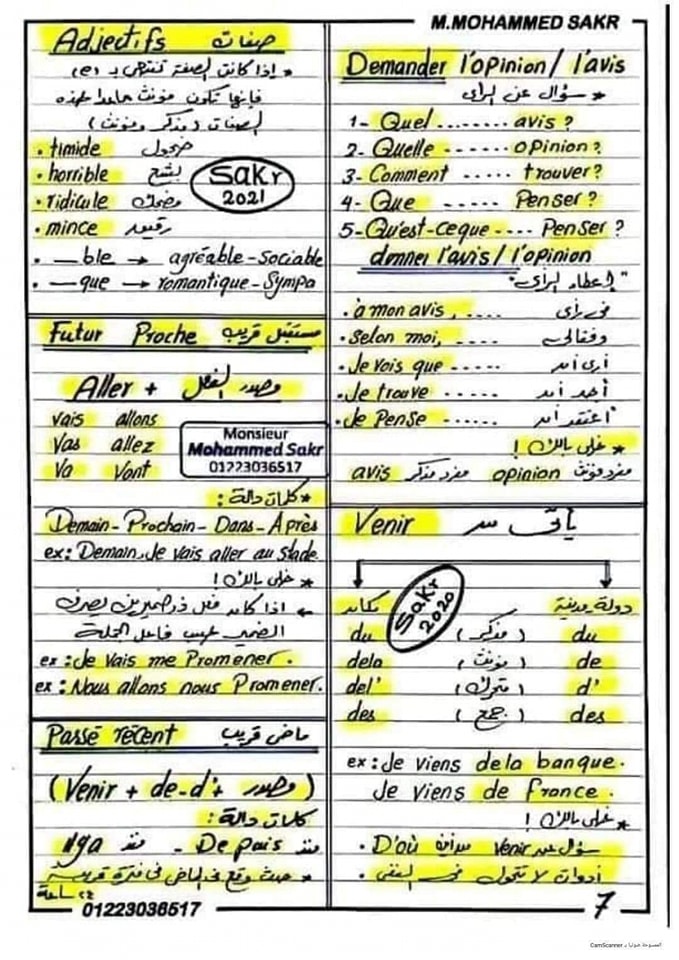 M.MOHAMMED SAKR
Adjectifs صفات
* إذا كانت الصفة تنتهى بـ (e)
فإنها تكون مؤنث
الصفات (مذكر ومؤنث)
. timide خجول
. horrible بشع
. ridicule مضحك
. mince رفيع
. __ble → agréable-Sociable
. __que → romantique-Sympa
Sakr
2021
Futur Proche مستقبل قريب
Aller + مصدر الفعل
vais allons
Vas allez
Va Vont
Monsieur
Mohammed Sakr
01223036517
* كلمات دالة :
Demain-Prochain-Dans-Après
ex: Demain, Je vais aller au stade.
* خلى بالك !
← اذا كان فعل ذو ضميرين يصرف
الضمير حسب فاعل الجملة
ex : Je Vais me Promener.
ex : Nous allons nous Promener.
Passé récent ماضى قريب
(Venir + de-d'+ مصدر)
كلمات دالة :
ilya منذ - Depuis منذ
* حدث وقع فى الماضى فى فترة قريبة
٢٤ ساعة
Demander l'opinion/ l'avis
* سؤال عن الرأى
1- Quel ........ avis ?
2- Quelle ....... opinion?
3- Comment ....... trouver?
4- Que ...... Penser?
5- Qu'est-ceque .... Penser ?
donner l'avis/ l'opinion
"إعطاء الرأى"
. à mon avis, ..... فى رأى
. Selon moi, .... وفقا لى
. Je vois que .... أرى أن
. Je trouve ...... أجد أن
. Je Pense ...... أعتقد أن
* خلى بالك !
avis مفرد مذكر opinion مفرد مؤنث
Venir يأتى من
Sakr
2020
مكان دولة مدينة
du (مذكر) du
dela (مؤنث) de
del' (متحرك) d'
des (جمع) des
ex : Je viens dela banque.
Je viens de france.
* خلى بالك !
. D'où سؤال عن Venir من أين
. أدوات لا تتحول فى النفى
01223036517
7
CamScanner الممسوحة ضوئيا بـ